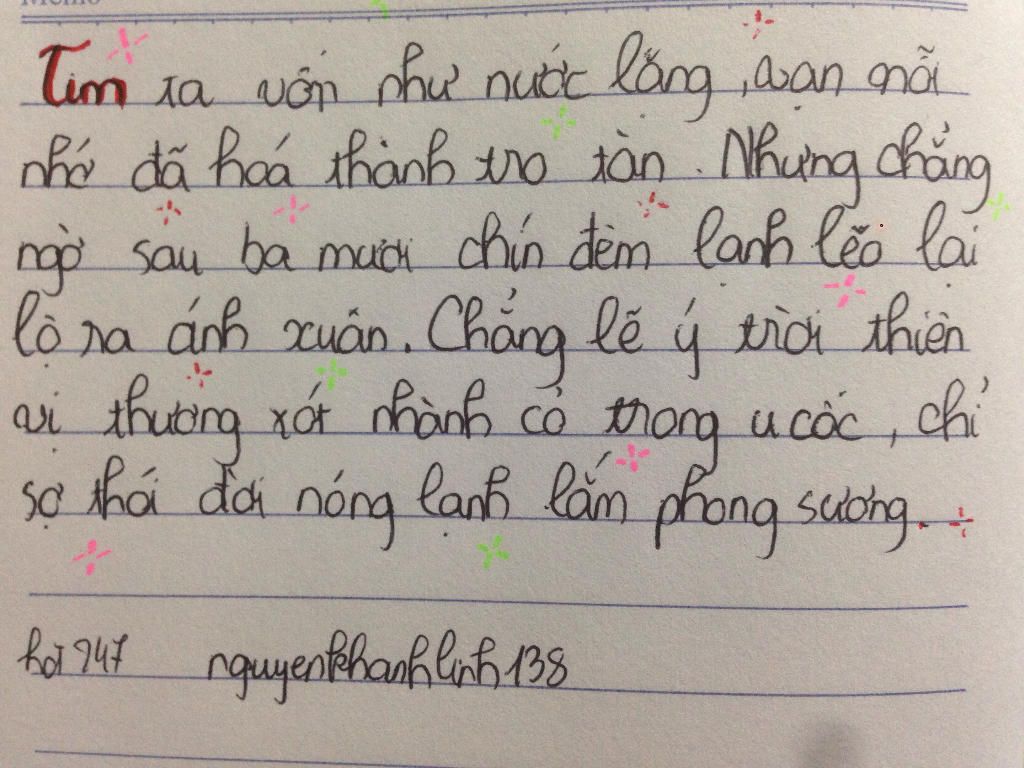 Memo
Tim ta vốn như nước lặng, vạn mỗi
nhớ đã hoá thành tro tàn. Nhưng chẳng
ngờ sau ba mươi chín đêm lạnh lẽo lại
lộ ra ánh xuân. Chẳng lẽ ý trời thiên
vị thương xót nhành cỏ trong u cốc, chỉ
sợ thói đời nóng lạnh lắm phong sương.
hồi 747 nguyenkhanhlinh138